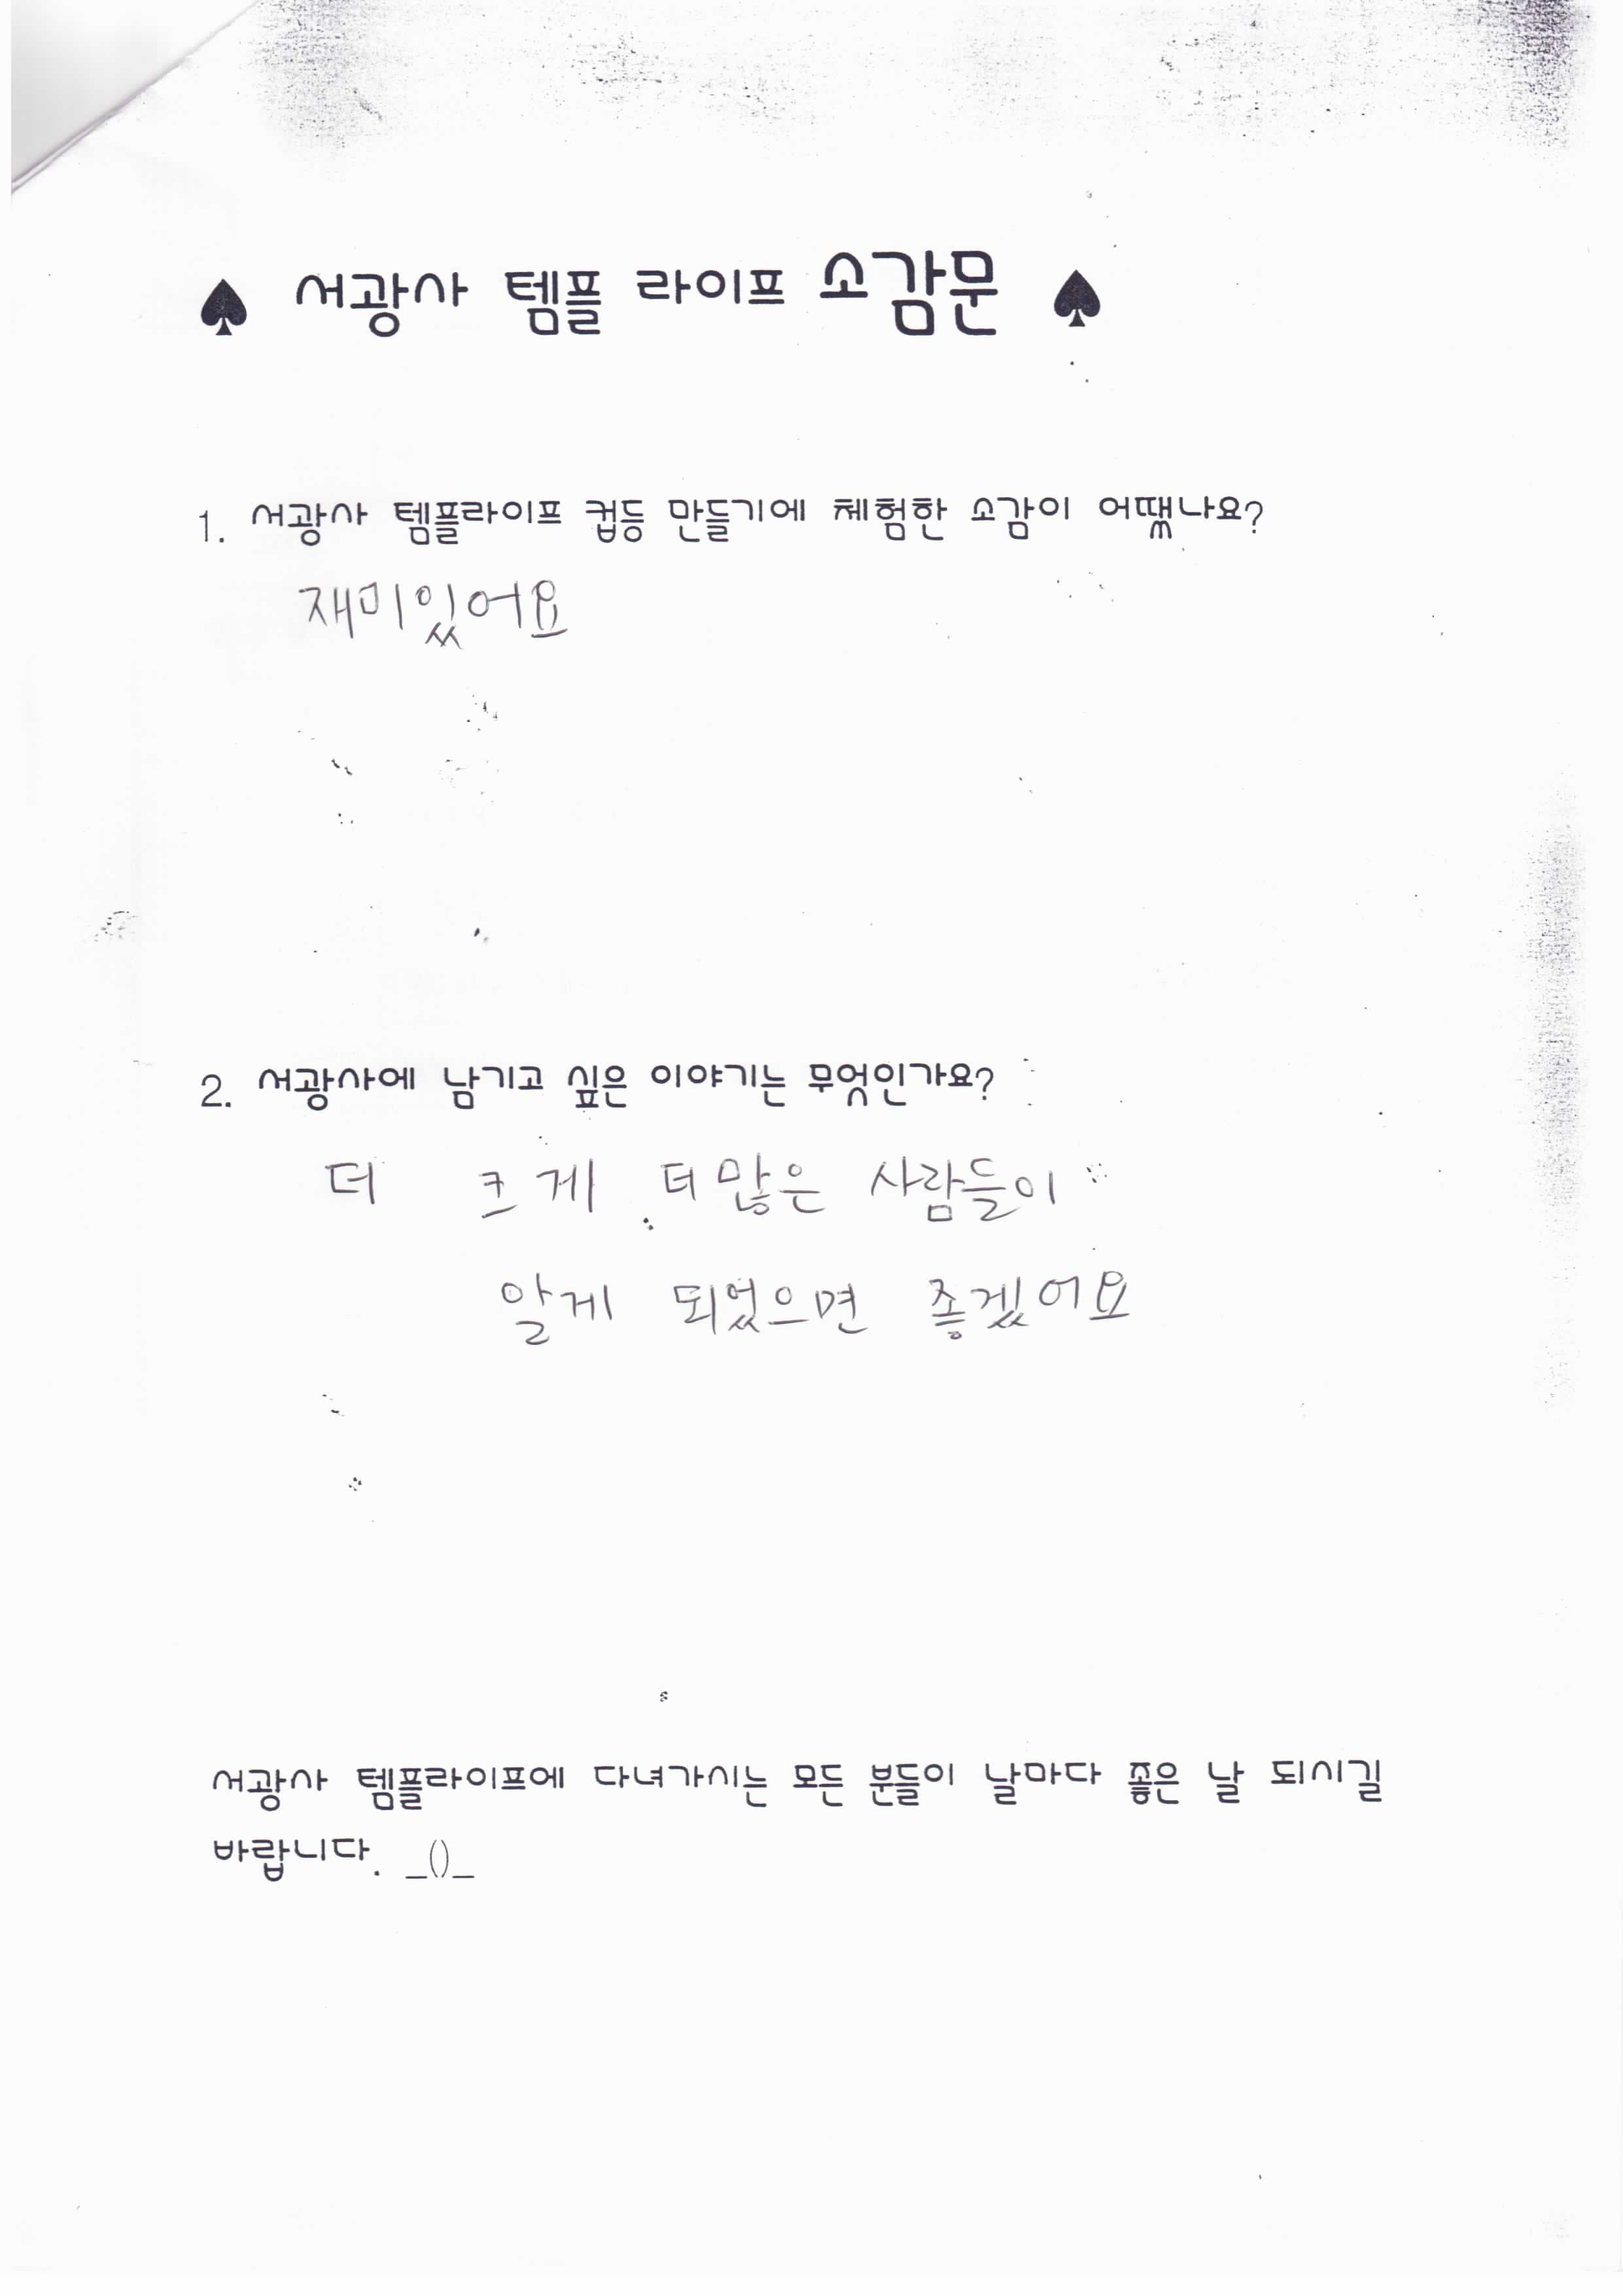 ♠ 서광사 템플 라이프 소감문 ♠
1. 서광사 템플라이프 컵등 만들기에 체험한 소감이 어땠나요?
재미있어요
2. 서광사에 남기고 싶은 이야기는 무엇인가요?
더 크게 더 많은 사람들이
알게 되었으면 좋겠어요
서광사 템플라이프에 다녀가시는 모든 분들이 날마다 좋은 날 되시길
바랍니다. _()_